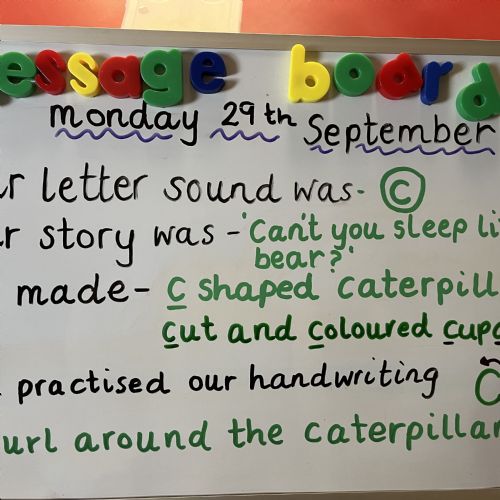 essage board
monday 29th September
r letter sound was - c
r story was - 'Can't you sleep li
bear?'
made - C shaped caterpill
cut and coloured cupc
practised our handwriting C
url around the caterpillar